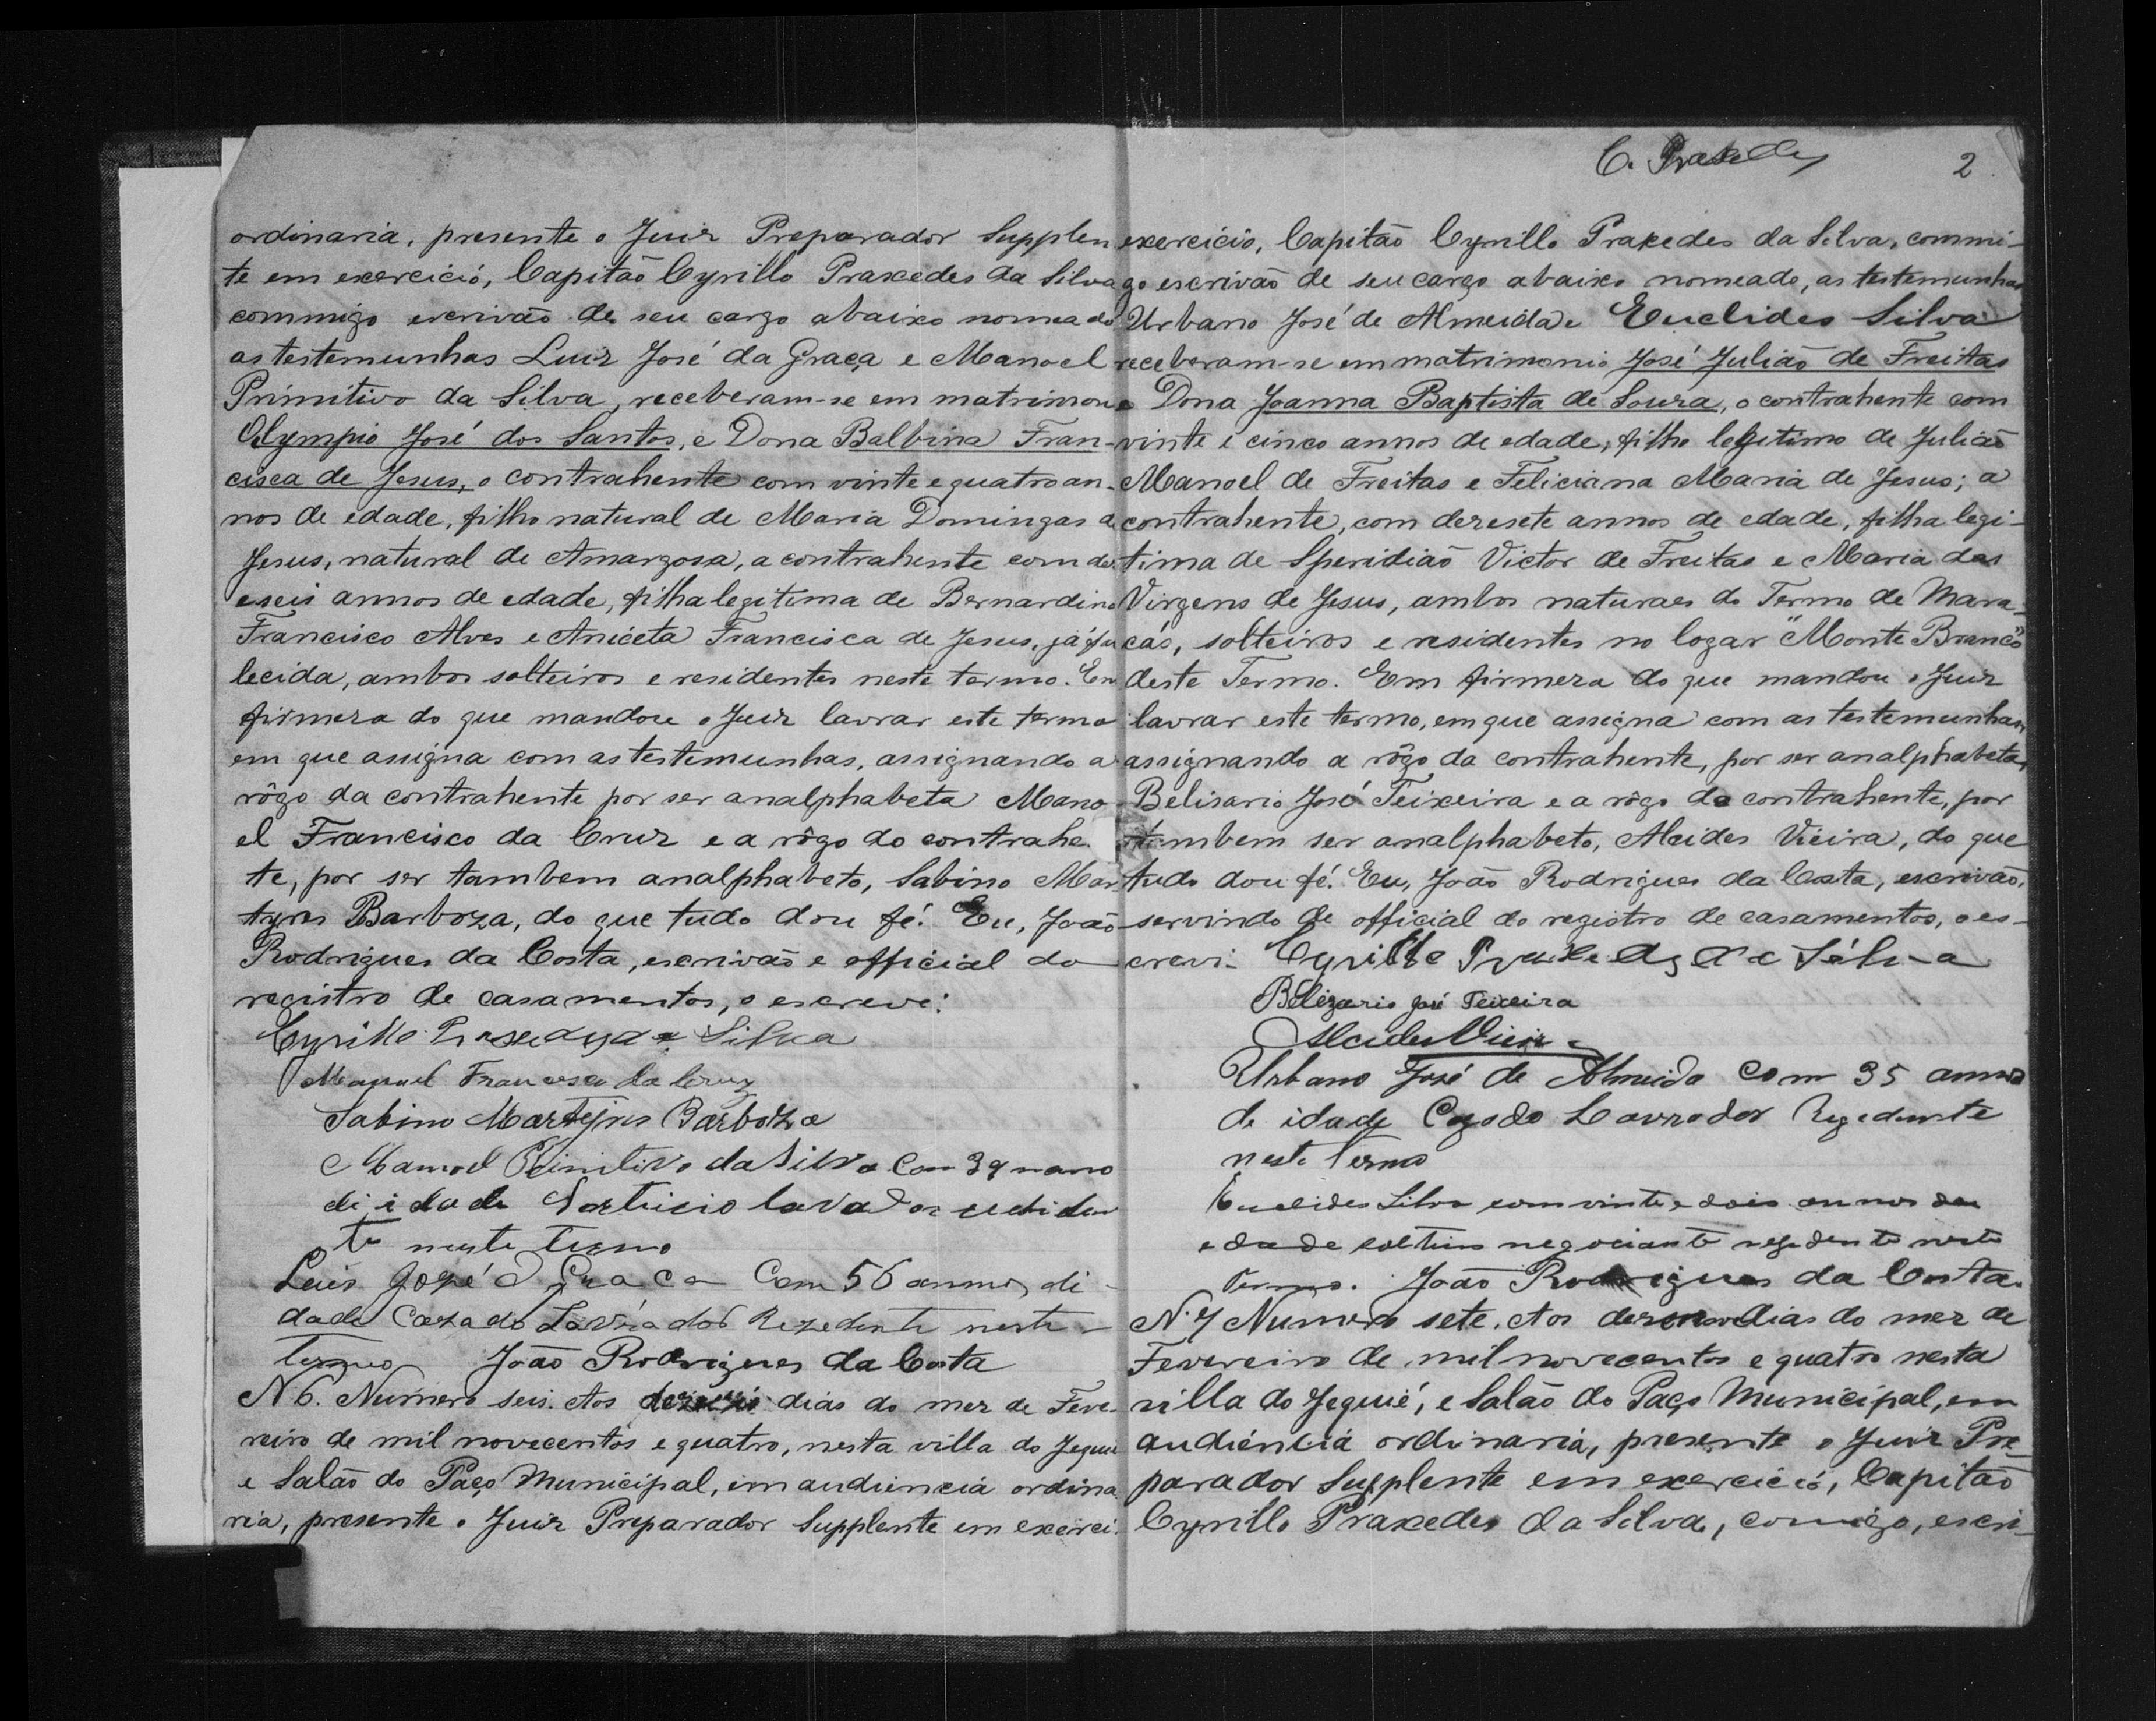 ordinaria, presente o Juiz Preparador Supplen
te em exercicio, Capitão Cyrillo Praxedes da Silva
commigo escrivão de seu cargo abaixo nomeado
as testemunhas Luiz José da Graça e Manoel
Primitivo da Silva, receberam-se em matrimonio
Olympio José dos Santos, e Dona Balbina Fran-
cisca de Jesus, o contrahente com vinte e quatro an-
nos de edade, filho natural de Maria Domingas de
Jesus, natural de Amargosa, a contrahente com dez
e seis annos de edade, filha legitima de Bernardino
Francisco Alves e Aniceta Francisca de Jesus, já fal
lecida, ambos solteiros e residentes neste termo. Em
firmeza do que mandou o Juiz lavrar este termo
em que assigna com as testemunhas, assignando a
rôgo da contrahente por ser analphabeta Mano-
el Francisco da Cruz e a rôgo do contrahe
te, por ser tambem analphabeto, Sabino Mar
tyres Barboza, do que tudo dou fé. Eu, João
Rodrigues da Costa, escrivão e official do
registro de casamentos, o escrevi.
Cyrillo Praxedes da Silva
Manuel Francisco da Cruz
Sabino Martyres Barboza
Manoel Primitivo da Silva Com
di idade lavador
te neste termo
Luis José d Graca Com 56 annos di
dade Cazado Lavrador Rezedente neste
termo João Rodrigues da Costa
N 6. Numero seis. Aos dezeseis dias do mez de Feve-
reiro de mil novecentos e quatro, nesta villa do Jequié
e Salão do Paço Municipal, em audiencia ordina
ria, presente o Juiz Preparador Supplente em exerci-
C. Praxedes 2
exercicio, Capitão Cyrillo Praxedes da Silva, commi-
go escrivão de seu cargo abaixo nomeado, as testemunhas
Urbano José de Almeida e Euclides Silva
receberam-se em matrimonio José Julião de Freitas
e Dona Joanna Baptista de Souza, o contrahente com
vinte e cinco annos de edade, filho legitimo de Julião
Manoel de Freitas e Feliciana Maria de Jesus; a
contrahente, com dezesete annos de edade, filha legi-
tima de Speridião Victor de Freitas e Maria das
Virgens de Jesus, ambos naturaes do Termo de Mara-
cás, solteiros e residentes no logar "Monte Branco"
deste Termo. Em firmeza do que mandou o Juiz
lavrar este termo, em que assigna com as testemunhas,
assignando a rôgo da contrahente, por ser analphabeta,
Belisario José Teixeira e a rôgo do contrahente, por
tambem ser analphabeto, Alcides Vieira, do que
tudo dou fé. Eu, João Rodrigues da Costa, escrivão,
servindo de official do registro de casamentos, o es-
crevi. Cyrillo Praxedes da Silva
Belizario José Teixeira
Alcides Vieira
Urbano José de Almeida Com 35 annos
de idade Cazado Lavrador Rezedente
neste Termo
Euclides Silva com vinte e dois annos de
edade solteiro negociante residente neste
termo. João Rodrigues da Costa.
N. 7 Numero sete. Aos dezenove dias do mez de
Fevereiro de mil novecentos e quatro nesta
villa do Jequié, e Salão do Paço Municipal, em
audiencia ordinaria, presente o Juiz Pre-
parador Supplente em exercicio, Capitão
Cyrillo Praxedes da Silva, comigo, escri-